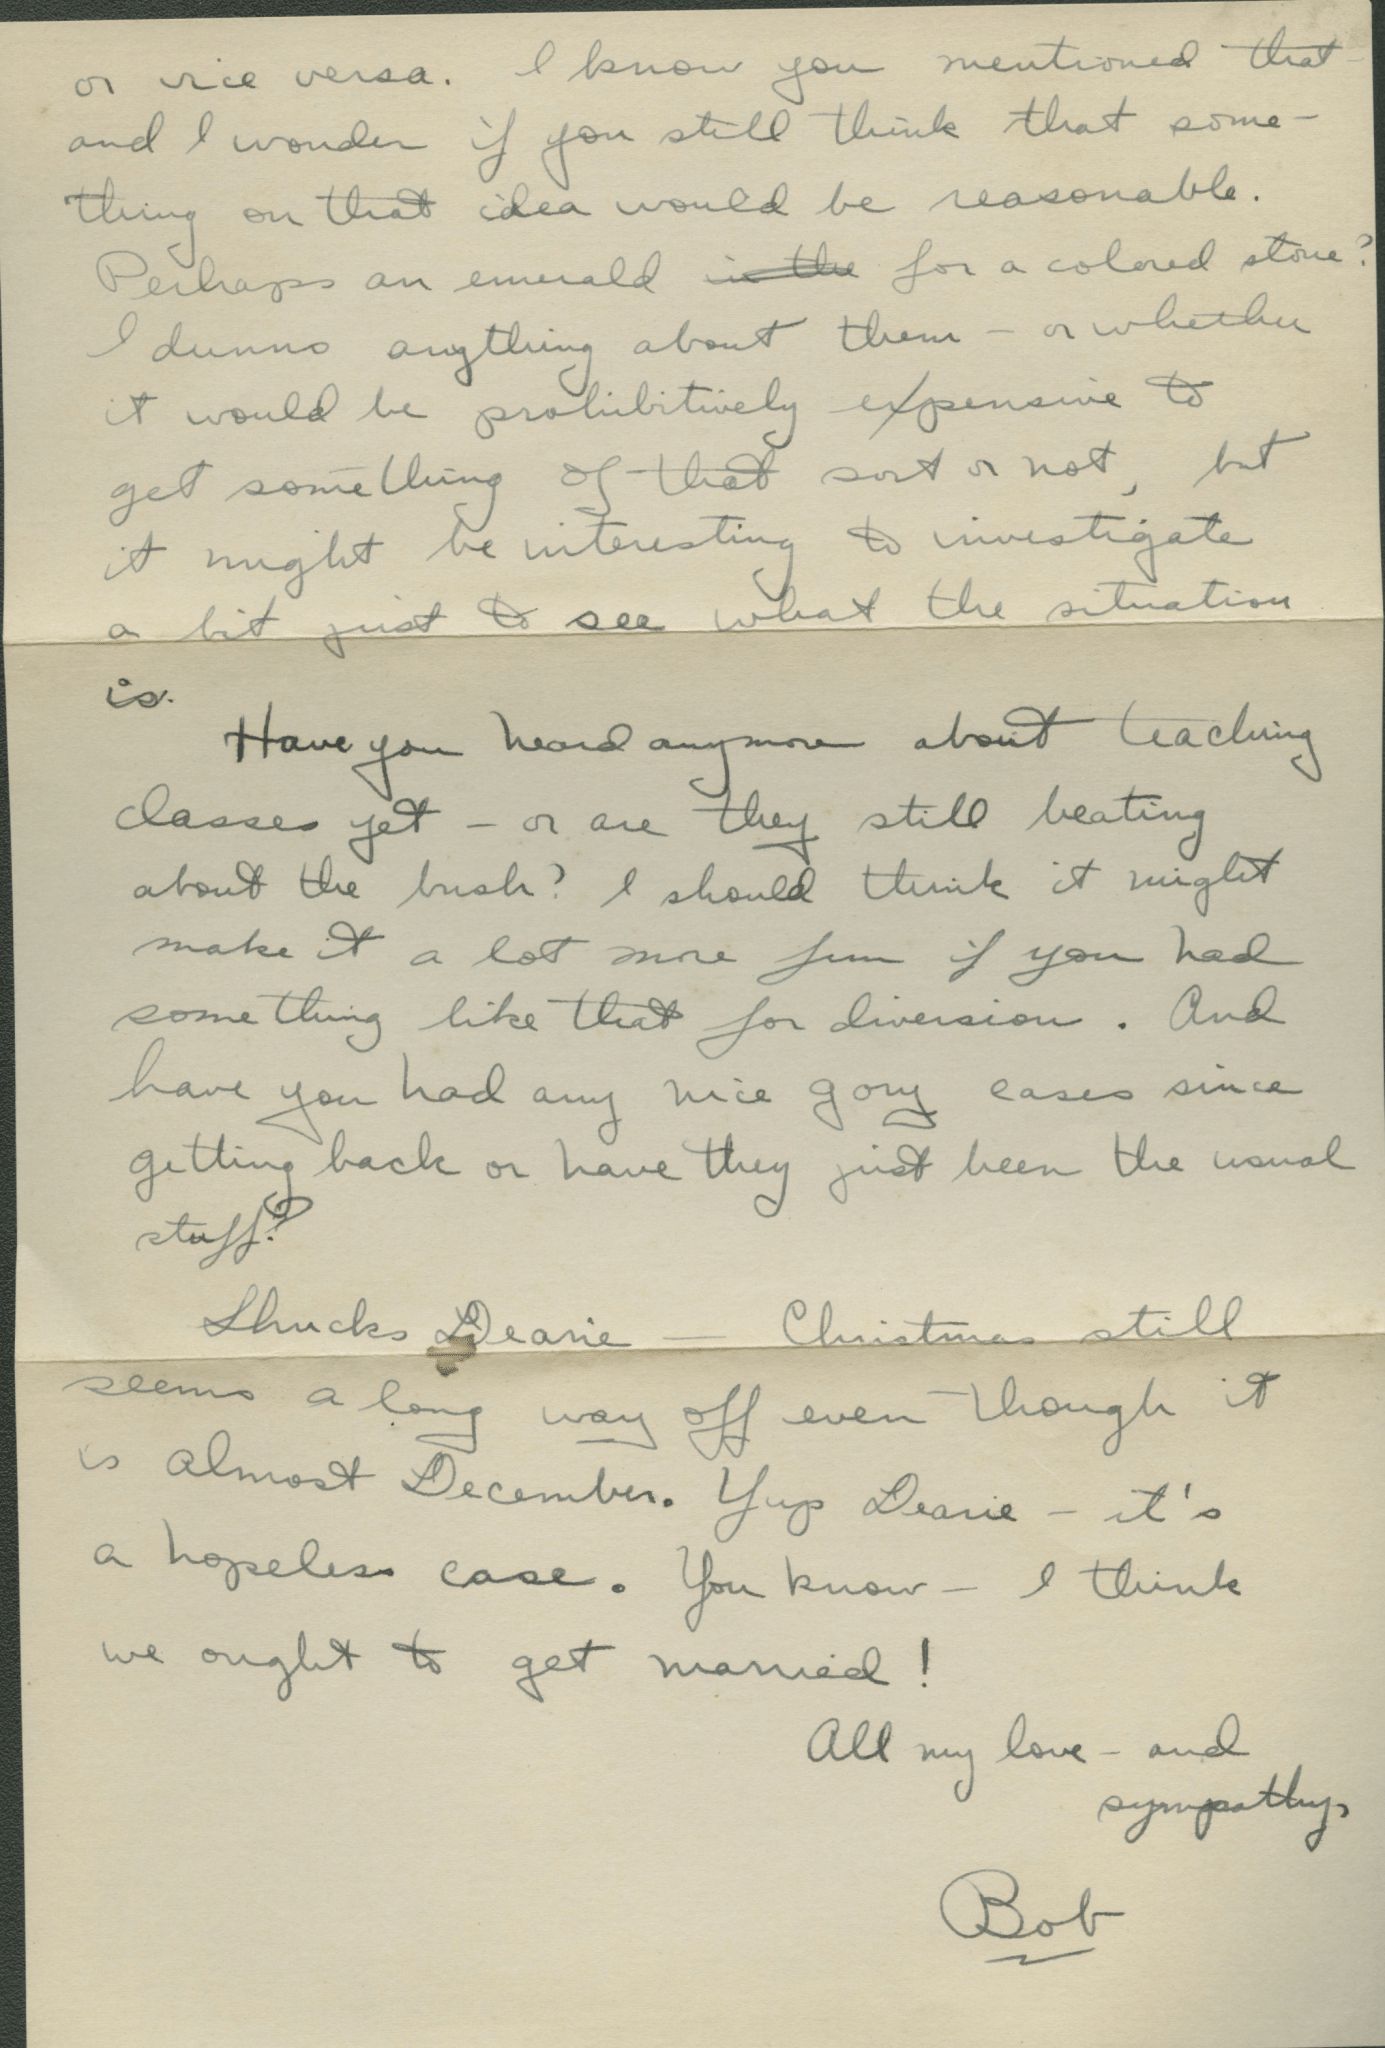 or vice versa. I know you mentioned that -
and I wonder if you still think that some-
thing on that idea would be reasonable.
Perhaps an emerald in the for a colored stone?
I dunno anything about them - or whether
it would be prohibitively expensive to
get something of that sort or not, but
it might be interesting to investigate
a bit just to see what the situation
is.
Have you heard anymore about teaching
classes yet - or are they still beating
about the bush? I should think it might
make it a lot more fun if you had
something like that for diversion. And
have you had any nice gory cases since
getting back or have they just been the usual
stuff?
Shucks Dearie - Christmas still
seems a long way off even though it
is almost December. Yup Dearie - it's
a hopeless case. You know - I think
we ought to get married!
All my love - and
sympathy,
Bob